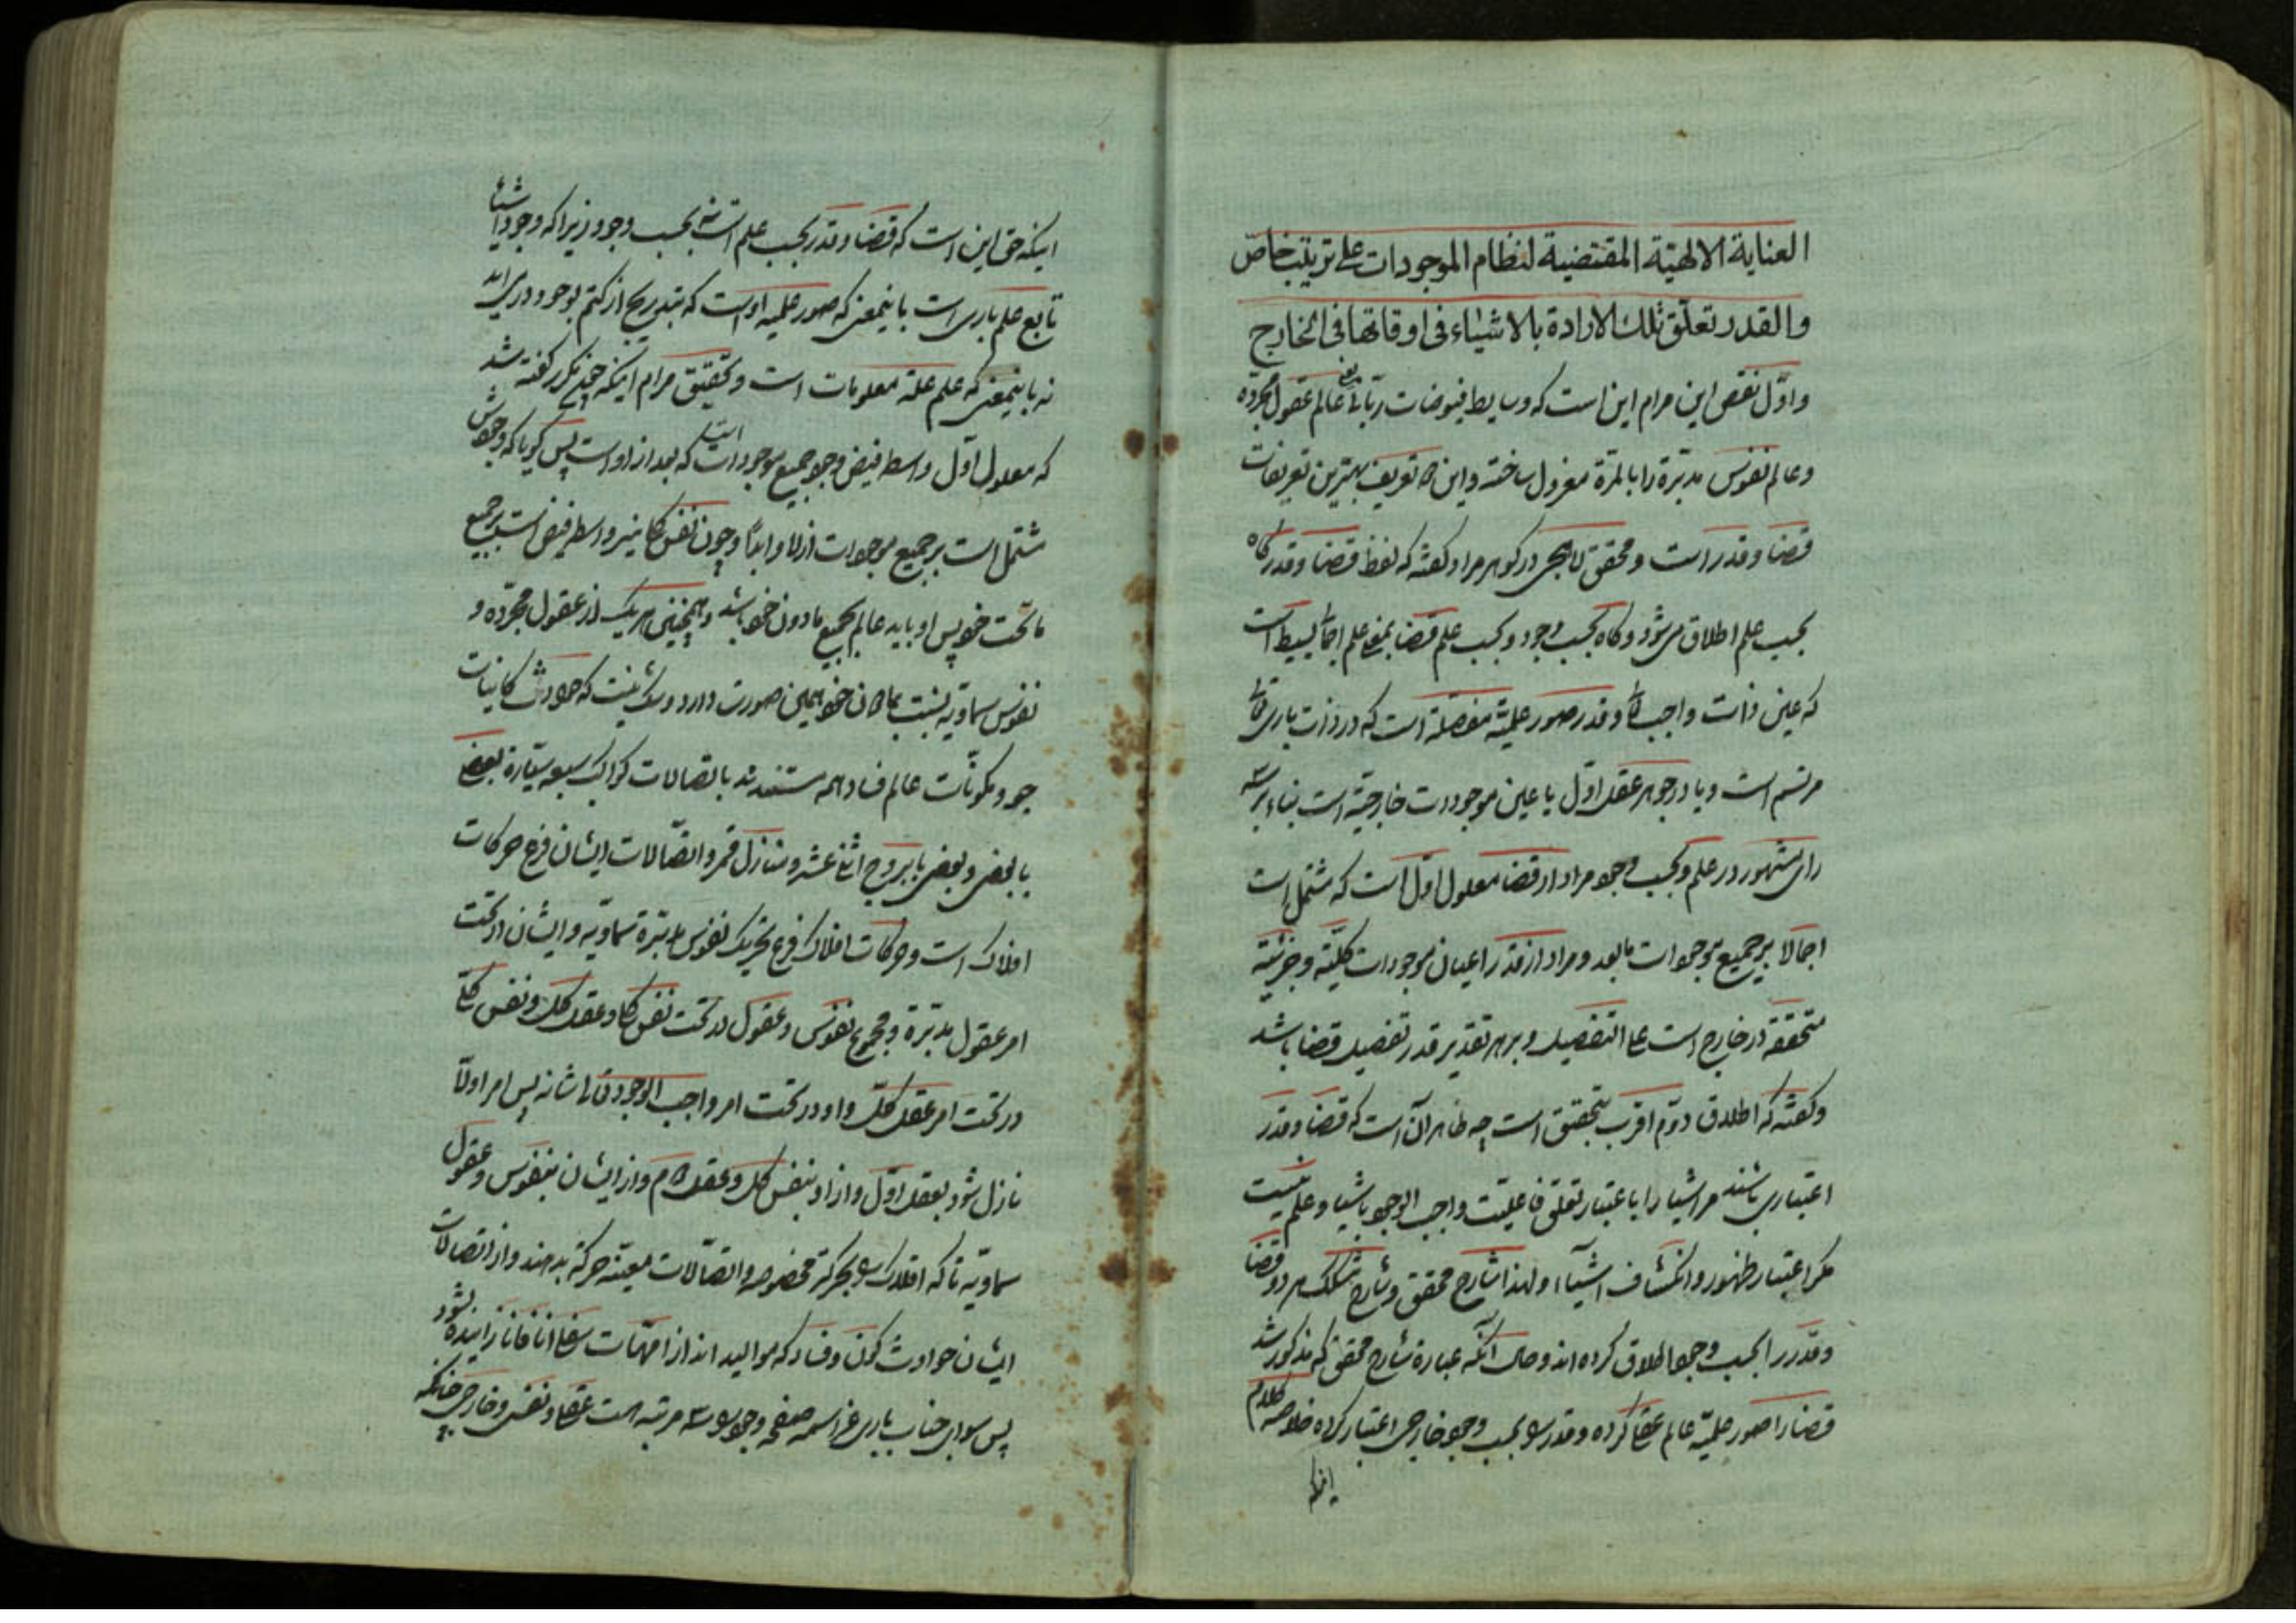 العنایة الالهیّة المقتضیة لنظام الموجودات علی ترتیب خاصّ
والقدر تعلّق تلك الارادة بالاشیاء فی اوقاتها فی الخارج
و اوّل نقص این مرام این است که وسایط فیوضات ربّانی عالم عقول مجرّده
و عالم نفوس مدبّرة را بالمرّة معزول ساخته و این تعریف بهترین تعریفات
قضا و قدر است و محقق لاهیجی در کوهر مراد کفته که لفظ قضا و قدر کاه
بحسب علم اطلاق می شود و کاه بحسب وجود و بحسب علم قضا بمعنی علم اجمالی بسیط است
که عین ذات واجب تعالی و قدر صور علمیّه مفصّله است که در ذات باری تعالی
مرتسم است و یا در جوهر عقل اوّل یا عین موجودات خارجیّه است بناء بر سه
رای مشهور در علم و بحسب وجود مراد از قضا معلول اوّل است که مشتمل است
اجمالا بر جمیع موجودات مابعد و مراد از قدر اعیان موجودات کلّیّه و جزئیّه
متحققه در خارج است علی التفصیل و بر هر تقدیر قدر تفصیل قضا باشد
و کفته که اطلاق دوّم اقرب بتحقیق است چه ظاهر آن است که قضا و قدر
اعتباری باشند مر اشیا را باعتبار تعلق فاعلیّت واجب الوجود باشیا و علم نیست
مکر اعتبار ظهور و انکشاف اشیآء و لهذا شارح محقق و شارح هر دو قضا
و قدر را بحسب وجود اطلاق کرده اند و حال آنکه عبارة شارح محقق که مذکور شد
قضا را صور علمیّه عالم عقلی کرده و قدر را بحسب وجود خارجی اعتبار کرده خلاصه کلام
اینکه
اینکه حق این است که قضا و قدر بحسب علم است نه بحسب وجود زیرا که وجود اشیا
تابع علم باری است باینمعنی که صور علمیه اوست که بتدریج از کتم بوجود در می اید
نه باینمعنی که علم علة معلومات است و تحقیق مرام اینکه چند مکرر کفته شد
که معلول اوّل واسطه فیض وجود جمیع موجودات است که بعد از اوست پس کویا که وجودش
مشتمل است بر جمیع موجودات ازلا و ابدًا و چون نفس کل نیز واسطه فیض است بر جمیع
ماتحت خود پس او باید عالم بجمیع مادون خود باشد و همچنین هریک از عقول مجرّده و
نفوس سماویه نسبت بمادون خود همین صورت دارد و شک نیست که حوادث کاینات
جو و مکونات عالم فساد همه مستندند باتصالات کواکب سبعه سیّاره بعضی
با بعضی و بعضی با بروج اثنا عشر و منازل قمر و اتصّالات ایشان فرع حرکات
افلاک است و حرکات افلاک فرع تحریک نفوس مدبّرة سماویّه و ایشان در تحت
امر عقول مدبّرة و مجموع نفوس و عقول در تحت نفس کل و عقل کل و نفس کلّی
در تحت امر عقل کلّ و او در تحت امر واجب الوجود تعالی شانه پس امر اولًا
نازل شود بعقل اوّل و از او بنفس کل و عقل دوم و از ایشان بنفوس و عقول
سماویّه تا که افلاک را بحرکة مخصوصه و اتصّالات معیّنه حرکة بدهند و از اتصالات
ایشان حوادث کون و فساد که موالید اند از امّهات سفلی انا فانا زائیده شود
پس سوای جناب باری عز اسمه صفحه وجود را سه مرتبه است عقلی و نفسی و خارجی چنانکه